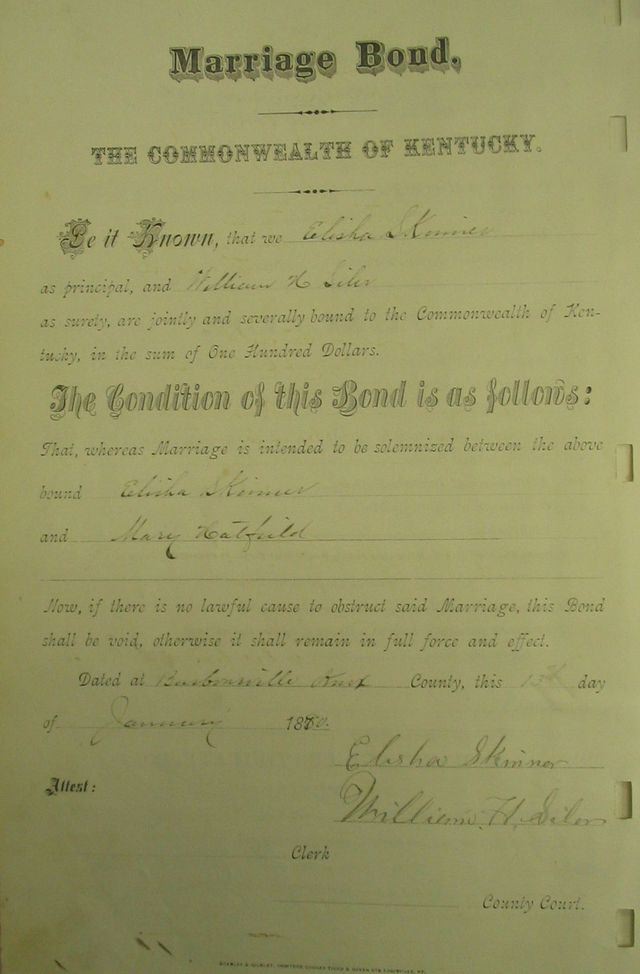 Marriage Bond.
THE COMMONWEALTH OF KENTUCKY.
Be it Known, that we Elisha Skinner
as principal, and William H Siler
as surety, are jointly and severally bound to the Commonwealth of Ken-
tucky, in the sum of One Hundred Dollars.
The Condition of this Bond is as follows:
That, whereas Marriage is intended to be solemnized between the above
bound Elisha Skinner
and Mary Hatfield
Now, if there is no lawful cause to obstruct said Marriage, this Bond
shall be void, otherwise it shall remain in full force and effect.
Dated at Barbourville Knox County, this 13th day
of January 1880.
Elisha Skinner
Attest:
William. H. Siler
Clerk
County Court.